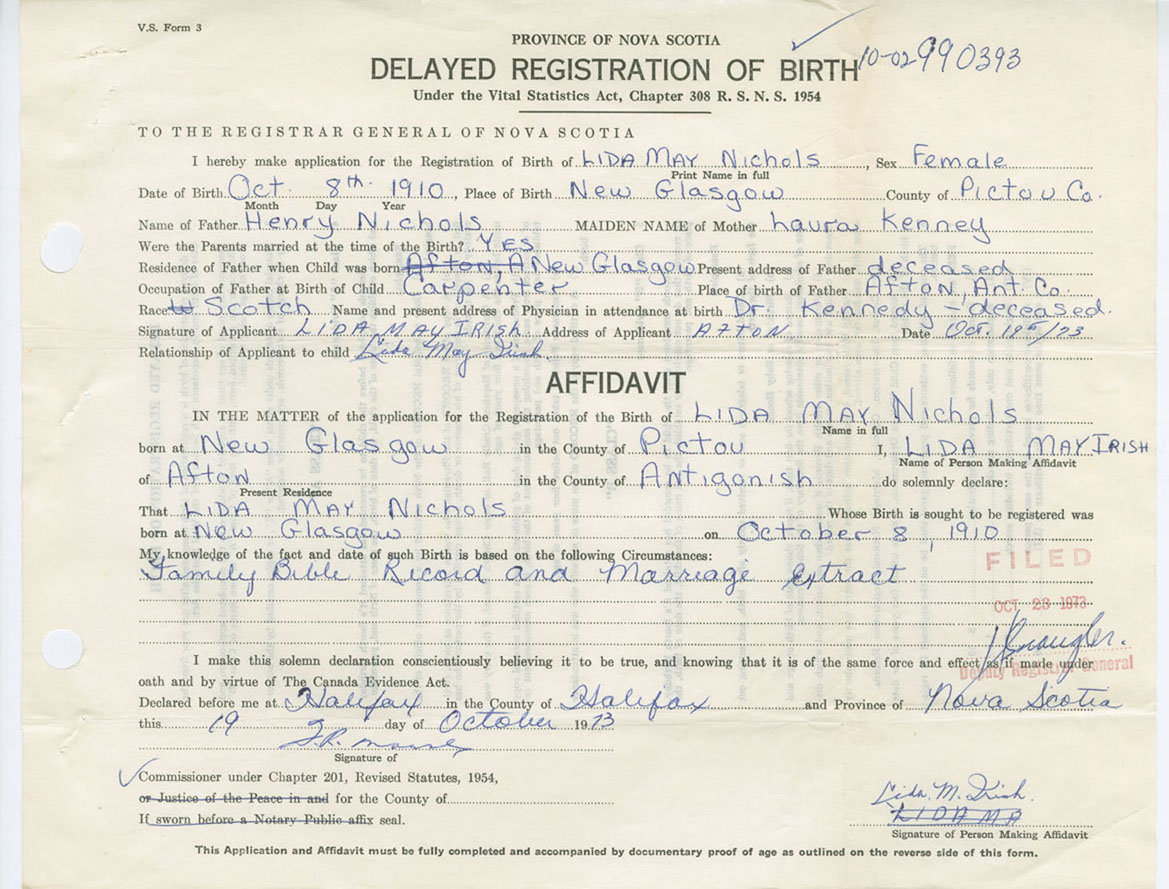 V.S. Form 3
PROVINCE OF NOVA SCOTIA
10-02 990393
DELAYED REGISTRATION OF BIRTH
Under the Vital Statistics Act, Chapter 308 R. S. N. S. 1954
TO THE REGISTRAR GENERAL OF NOVA SCOTIA
I hereby make application for the Registration of Birth of LIDA MAY Nichols, Sex Female
Print Name in full
Date of Birth Oct. 8th. 1910, Place of Birth New Glasgow County of Pictou Co.
Month Day Year
Name of Father Henry Nichols MAIDEN NAME of Mother Laura Kenney
Were the Parents married at the time of the Birth? Yes
Residence of Father when Child was born Afton, A New Glasgow Present address of Father deceased
Occupation of Father at Birth of Child Carpenter Place of birth of Father Afton, Ant. Co.
Race Scotch Name and present address of Physician in attendance at birth Dr. Kennedy - deceased.
Signature of Applicant LIDA MAY IRISH Address of Applicant AFTON. Date Oct. 19th/73
Relationship of Applicant to child Lida May Irish
AFFIDAVIT
IN THE MATTER of the application for the Registration of the Birth of LIDA MAY Nichols
Name in full
born at New Glasgow in the County of Pictou I, LIDA MAY IRISH
Name of Person Making Affidavit
of Afton in the County of Antigonish do solemnly declare:
Present Residence
That LIDA MAY Nichols Whose Birth is sought to be registered was
born at New Glasgow on October 8, 1910
My knowledge of the fact and date of such Birth is based on the following Circumstances:
Family Bible Record and Marriage Extract
FILED
OCT 23 1973
I make this solemn declaration conscientiously believing it to be true, and knowing that it is of the same force and effect as if made under
Deputy Registrar General
oath and by virtue of The Canada Evidence Act.
Declared before me at Halifax in the County of Halifax and Province of Nova Scotia
this 19 day of October 1973
Signature of
Commissioner under Chapter 201, Revised Statutes, 1954,
or Justice of the Peace in and for the County of
If sworn before a Notary Public affix seal.
Lida M. Irish.
LIDA MA
Signature of Person Making Affidavit
This Application and Affidavit must be fully completed and accompanied by documentary proof of age as outlined on the reverse side of this form.